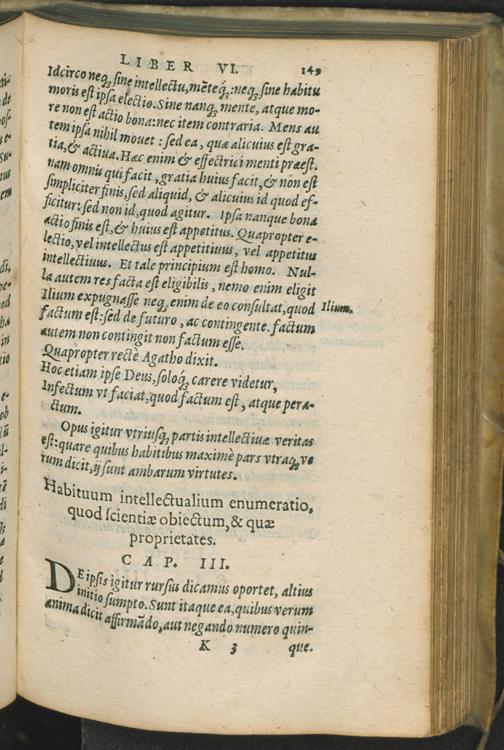 LIBER VI. 149
Idcirco neq; sine intellectu, mēteq́;: neq; sine habitu
moris est ipsa electio. Sine nanq; mente, atque mo-
re non est actio bona: nec item contraria. Mens au
tem ipsa nihil mouet: sed ea, quæ alicuius est gra-
tia, & actiua. Hæc enim & effectrici menti præest.
nam omnis qui facit, gratia huius facit, & non est
simpliciter finis, sed aliquid, & alicuius id quod ef-
ficitur: sed non id, quod agitur. Ipsa nanque bona
actio finis est, & huius est appetitus. Quapropter e-
lectio, vel intellectus est appetitiuus, vel appetitus
intellectiuus. Et tale principium est homo. Nul-
la autem res facta est eligibilis, nemo enim eligit
Ilium expugnasse neq; enim de eo consultat, quod Ilium.
factum est: sed de futuro, ac contingente. factum
autem non contingit non factum esse.
Quapropter recte Agatho dixit.
Hoc etiam ipse Deus, soloq́; carere videtur,
Infectum vt faciat, quod factum est, atque pera-
ctum.
Opus igitur vtriusq; partis intellectiuæ veritas
est: quare quibus habitibus maximè pars vtraq; ve
rum dicit, ij sunt ambarum virtutes.
Habituum intellectualium enumeratio,
quod scientiæ obiectum, & quæ
proprietates.
CAP. III.
DE ipsis igitur rursus dicamus oportet, altius
initio sumpto. Sunt itaque ea, quibus verum
anima dicit affirmādo, aut negando numero quin-
K 3 que.